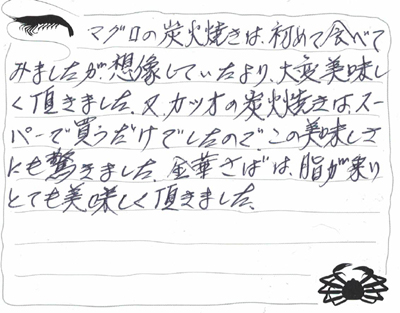 マグロの炭火焼きは、初めて食べて
みましたが、想像していたより、大変美味し
く頂きました。又、カツオの炭火焼きは、スー
パーで買うだけでしたので、この美味しさ
にも驚きました。金華さばは、脂が乗り
とても美味しく頂きました。